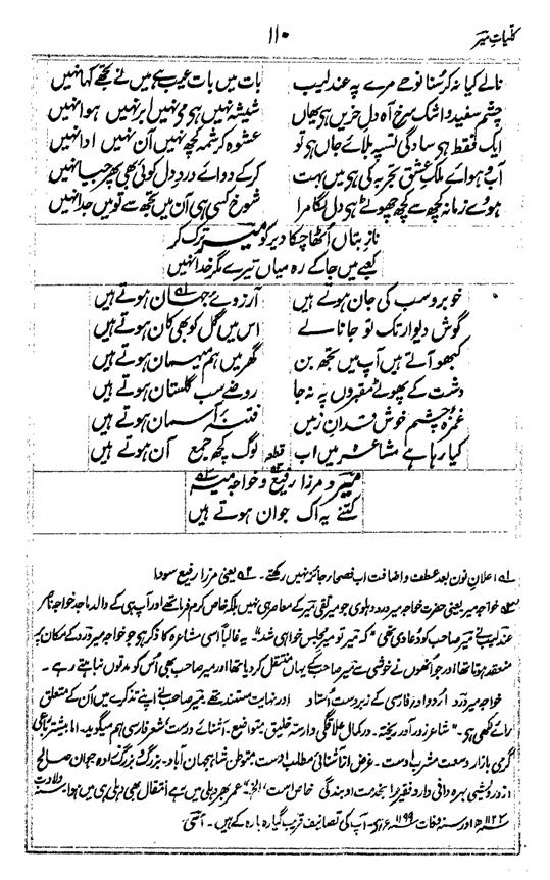 کلیاتِ میر
۱۱۰
نالے کیا نہ کر سُنا نوحے مرے پہ عندلیب بات میں بات عیب ہے میں نے تجھے کہا نہیں
چشم سفید و اشک سرخ آہ دل حزیں ہی یھاں شیشہ نہیں ہی مَی نہیں ابر نہیں ہوا نہیں
ایک فقط ہی سادگی تسپہ بلائے جاں ہی تو عشوہ کرشمہ کچھ نہیں آن نہیں ادا نہیں
آب و ہوائے ملک عشق تجربہ کی ہی میں بہت کرکے دوائے دردِ دل کوئی بھی پھر جیا نہیں
ہووے زمانہ کچھ سے کچھ چھوٹے ہی دل لگا مرا شوخ کسی ہی آن میں تجھ سے تو میں جدا نہیں
نازِ بتاں اُٹھا چکا دیر کو میر ترک کر
کعبے میں جا کے رہ میاں تیرے مگر خدا نہیں
خوبرو سب کی جان ہوتے ہیں آرزوے جہان ہوتے ہیں
گوش دیوار تک تو جا نالے اس میں گل کو بھی کان ہوتے ہیں
کبھو آتے ہیں آپ میں تجھ بن گھر میں ہم میہمان ہوتے ہیں
دشت کے پھولے مقبروں پہ نہ جا روضے سب گلستان ہوتے ہیں
غمزۂ چشم خوش قدانِ زمیں فتنۂ آسمان ہوتے ہیں
کیا رہا ہے مشاعرے میں اب قطعہ لوگ کچھ جمع آن ہوتے ہیں
میر و مرزا رفیع و خواجہ میر
کتنے یہ اک جوان ہوتے ہیں
۱؎ اعلانِ نون بعد عطف و اضافت اب فصحاء جائز نہیں رکھتے ۔ ۲؎ یعنی مرزا رفیع سودا
۳؎ خواجہ میر یعنی حضرت خواجہ میر درد دہلوی جو میر تقی میر کے معاصر ہی نہیں بلکہ خاص کرم فرما تھے اور آپ ہی کے والد ماجد خواجہ ناصر
عندلیب نے میر صاحب کو دعا دی تھی "کہ میر تو میرِ مجلس خواہی شد"۔ یہ غالباً اُسی مشاعرہ کا ذکر ہو جو خواجہ میر درد کے مکان پر
منعقد ہوتا تھا اور جو اُنھوں نے خوشی سے میر صاحب کے یہاں منتقل کر دیا تھا اور میر صاحب بھی اُس کو مدتوں نباہتے رہے ۔
خواجہ میر درد اُردو اور فارسی کے زبردست اُستاد اور نہایت مستند تھے میر صاحب نے اپنے تذکرے میں اُن کے متعلق
رائے لکھی ہی ۔ "شاعر زور آور ریختہ ۔ در کمال علاقگی وارستہ خلیق متواضع ۔ آشنائے درست شعر فارسی ہم میگوید ۔ اما بیشتر رباعی
گرمی بازار وسعت مشرب اوست ۔ غرض از آشنائی مطلب اوست متوطن شاہجہان آباد ۔ بزرگ و بزرگ زادہ جوان صالح
از درویشی بہرہ دانی دارد فقیر را بخدمت او بندگی خاص است" الخ عمر بھر دہلی میں رہے انتقال بھی دہلی ہی میں ہوا سنہ ولادت
۱۱۳۳ھ اور سنہ وفات ۱۱۹۹ھ ہی آپ کی تصانیف قریب گیارہ بارہ کے ہیں ۔ آسی